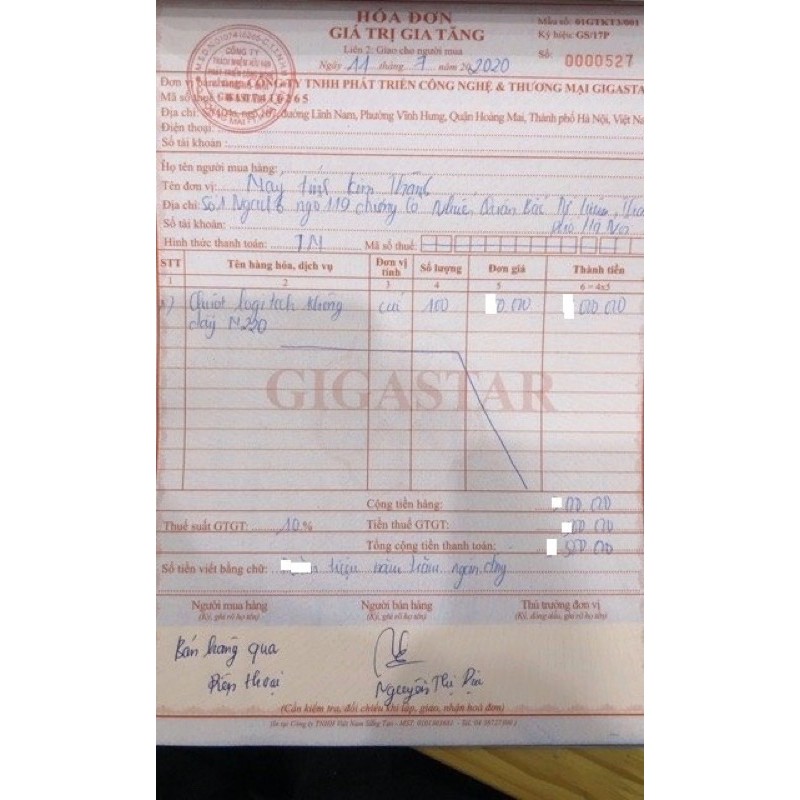 HÓA ĐƠN
GIÁ TRỊ GIA TĂNG
Liên 2: Giao cho người mua
Ngày 11 tháng 7 năm 2020
Mẫu số: 01GTKT3/001
Ký hiệu: GS/17P
Số: 0000527
CÔNG TY
TRÁCH NHIỆM HỮU HẠN
Đơn vị bán hàng: CÔNG TY TNHH PHÁT TRIỂN CÔNG NGHỆ & THƯƠNG MẠI GIGASTA
Mã số thuế:
Địa chỉ: đường Lĩnh Nam, Phường Vĩnh Hưng, Quận Hoàng Mai, Thành phố Hà Nội, Việt Na
Điện thoại:
Số tài khoản:
Họ tên người mua hàng:
Tên đơn vị: Máy tính Kim Thành
Địa chỉ: Số 1 ngõ 119 Nhuế Quận Bắc Từ Liêm, Thà
phố Hà Nội
Số tài khoản:
Hình thức thanh toán: TM Mã số thuế:
STT Tên hàng hóa, dịch vụ Đơn vị tính Số lượng Đơn giá Thành tiền
1 2 3 4 5 6 = 4x5
Chuột logitech không cái 100 0.000 000 000
dây N220
GIGASTAR
Cộng tiền hàng: 000.000
Thuế suất GTGT: 10 % Tiền thuế GTGT: 000 000
Tổng cộng tiền thanh toán: 500 000
Số tiền viết bằng chữ: triệu năm trăm ngàn đồng
Người mua hàng Người bán hàng Thủ trưởng đơn vị
(Ký, ghi rõ họ tên) (Ký, ghi rõ họ tên) (Ký, đóng dấu, ghi rõ họ tên)
Bán hàng qua
Điện thoại
Nguyễn Thị
(Cần kiểm tra, đối chiếu khi lập, giao, nhận hoá đơn)
(In tại Công ty TNHH Việt Nam Sáng Tạo - MST: